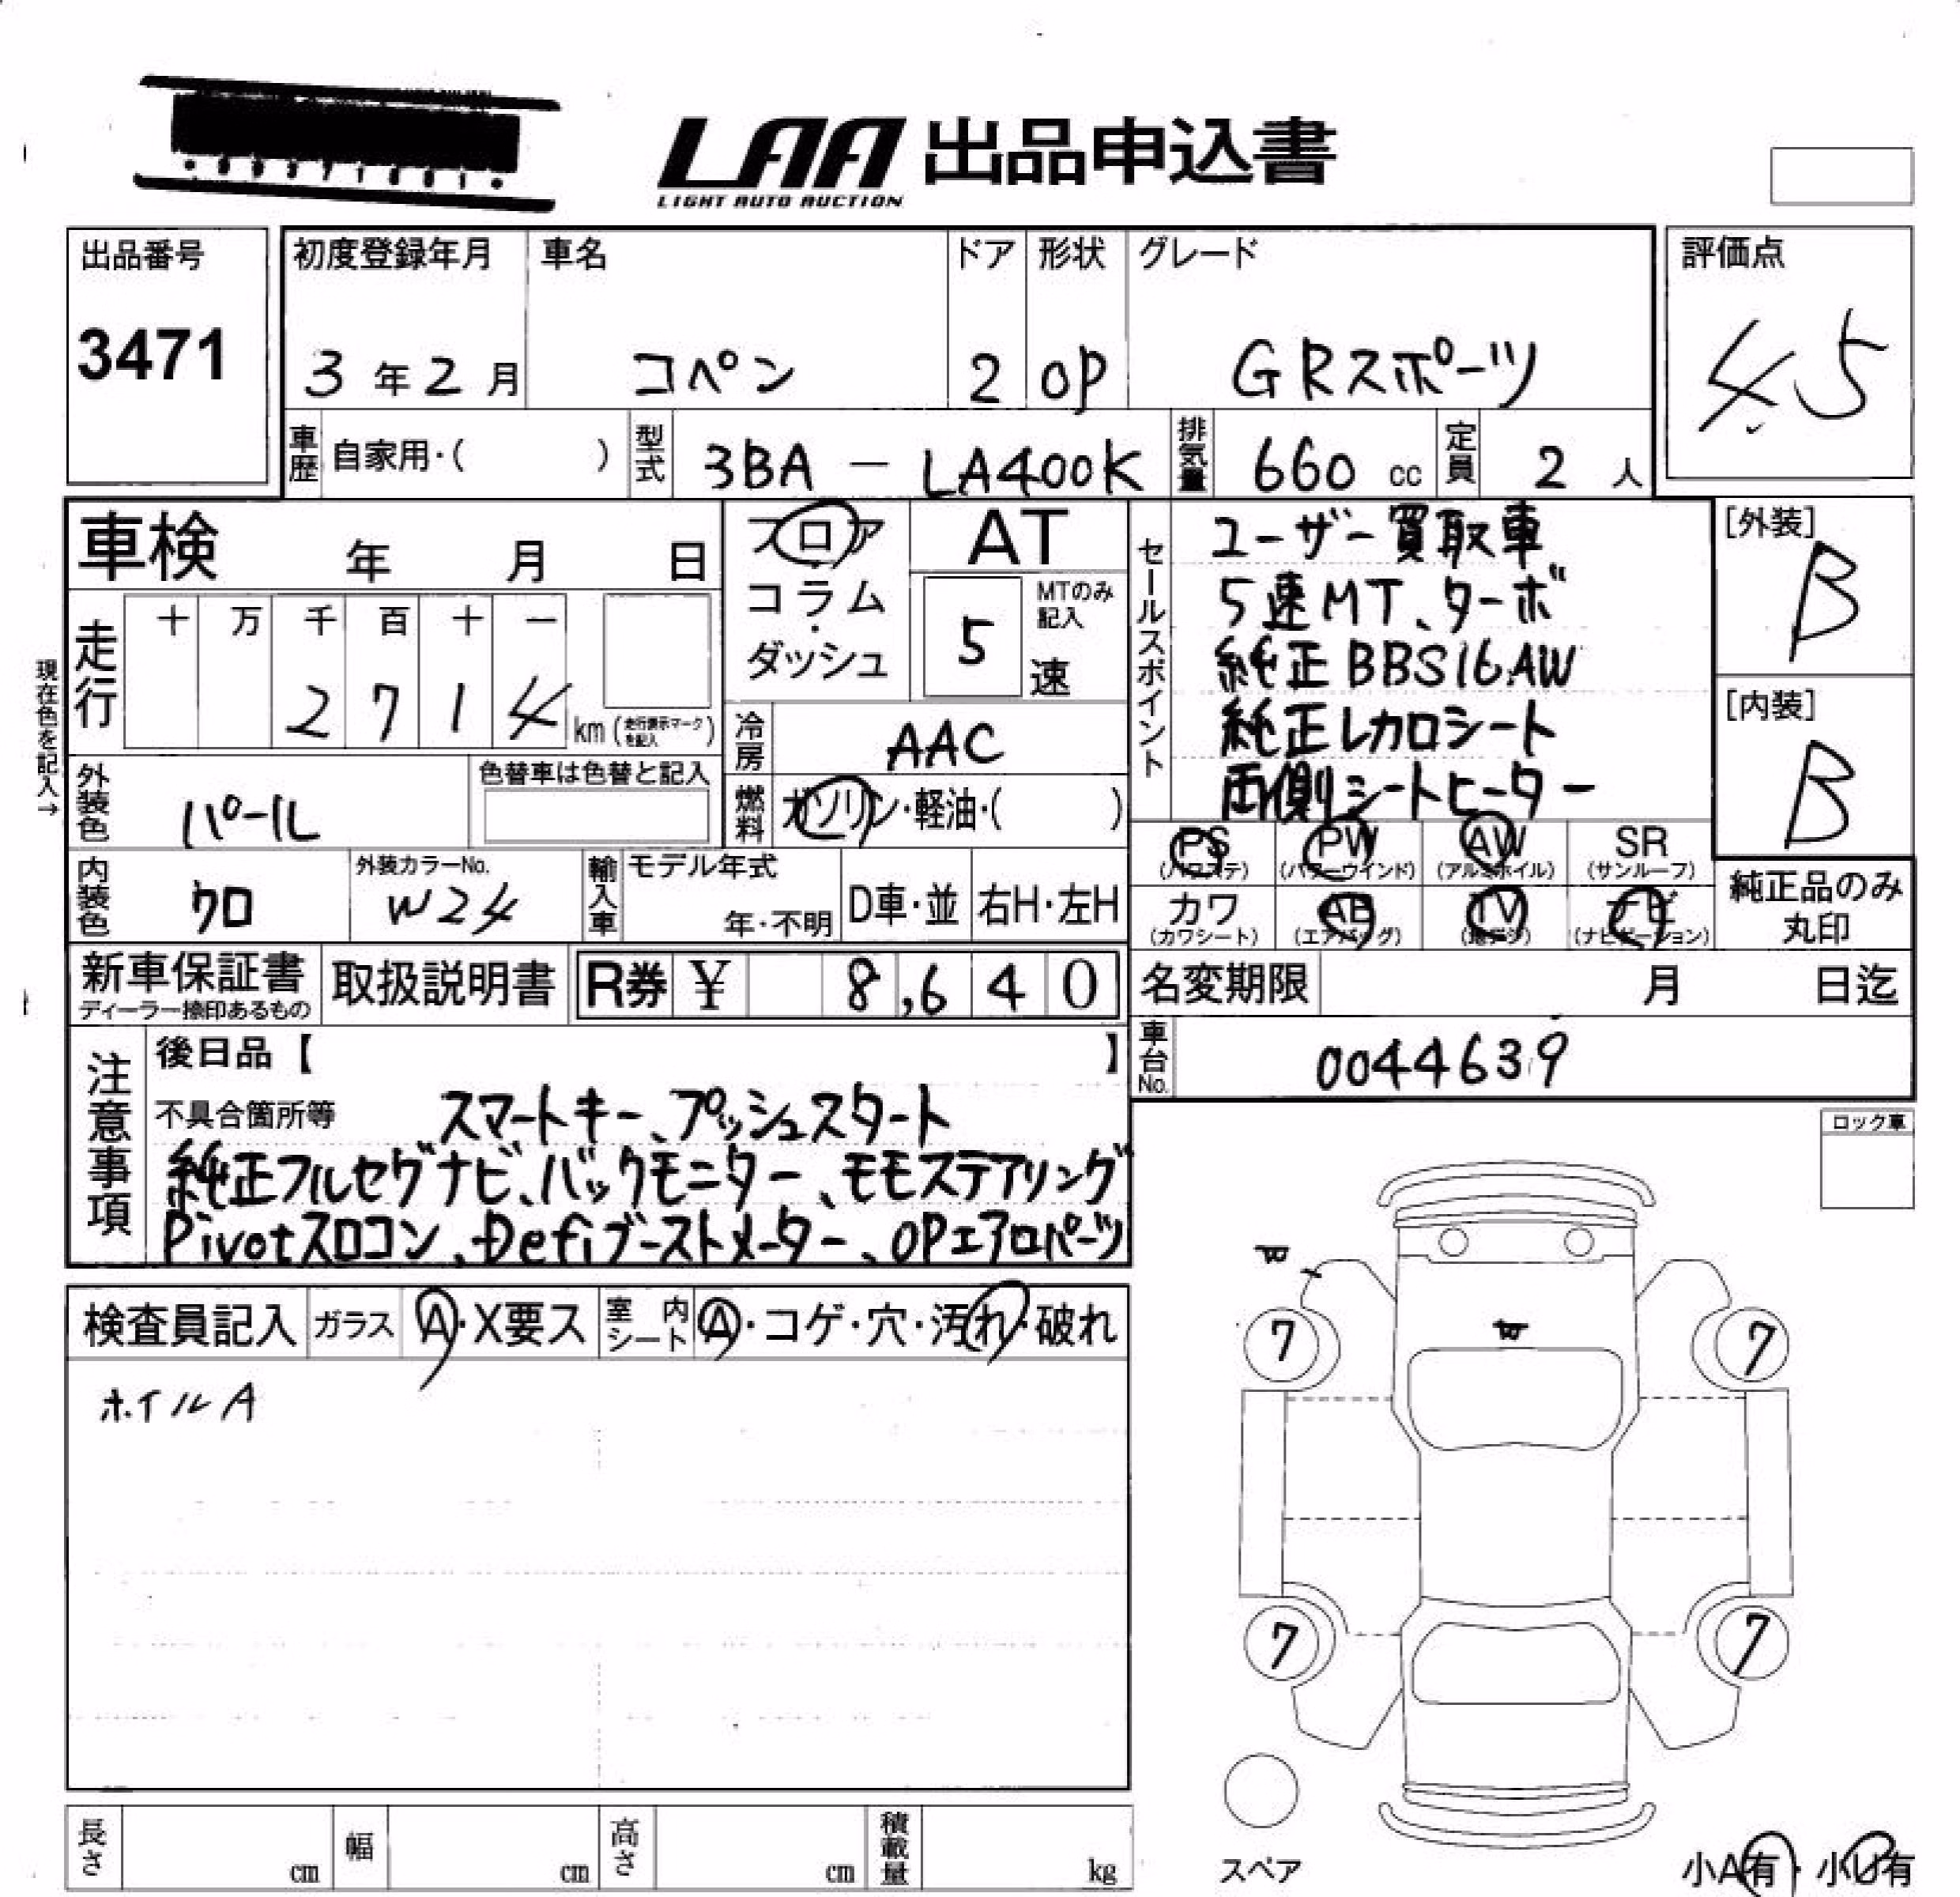 LAA 出品申込書
LIGHT AUTO AUCTION
出品番号 3471
初度登録年月 3年2月
車名 コペン
ドア 2
形状 OP
グレード GRスポーツ
評価点 4.5
車歴 自家用・( )
型式 3BA - LA400K
排気量 660 cc
定員 2 人
車検 年 月 日
フロア
コラム
ダッシュ
AT
5 速 MTのみ記入
セールスポイント
ユーザー買取車
5速MT、ターボ
純正BBS16AW
純正レカロシート
両側シートヒーター
[外装] B
[内装] B
現在色を記入→
走行 十 万 千 百 十 一
2 7 1 4 km (走行表示マークを記入)
冷房 AAC
燃料 ガソリン・軽油・( )
外装色 パール
色替車は色替と記入
内装色 クロ
外装カラーNo. W24
輸入車 モデル年式 年・不明 D車・並 右H・左H
PS (パワステ) PW (パワーウインド) AW (アルミホイル) SR (サンルーフ)
カワ (カワシート) AB (エアバッグ) TV (地デジ) ナビ (ナビゲーション)
純正品のみ丸印
新車保証書 ディーラー捺印あるもの
取扱説明書
R券 ¥ 8,640
名変期限 月 日迄
車台No. 0044639
注意事項
後日品【 】
不具合箇所等 スマートキー、プッシュスタート
純正フルセグナビ、バックモニター、モモステアリング
Pivotスロコン、Defiブーストメーター、OPエアロパーツ
ロック車
検査員記入 ガラス A・X要ス 室内シート A・コゲ・穴・汚れ・破れ
ホイルA
W
W
7 7
7 7
スペア
小A有・小U有
長さ cm 幅 cm 高さ cm 積載量 kg